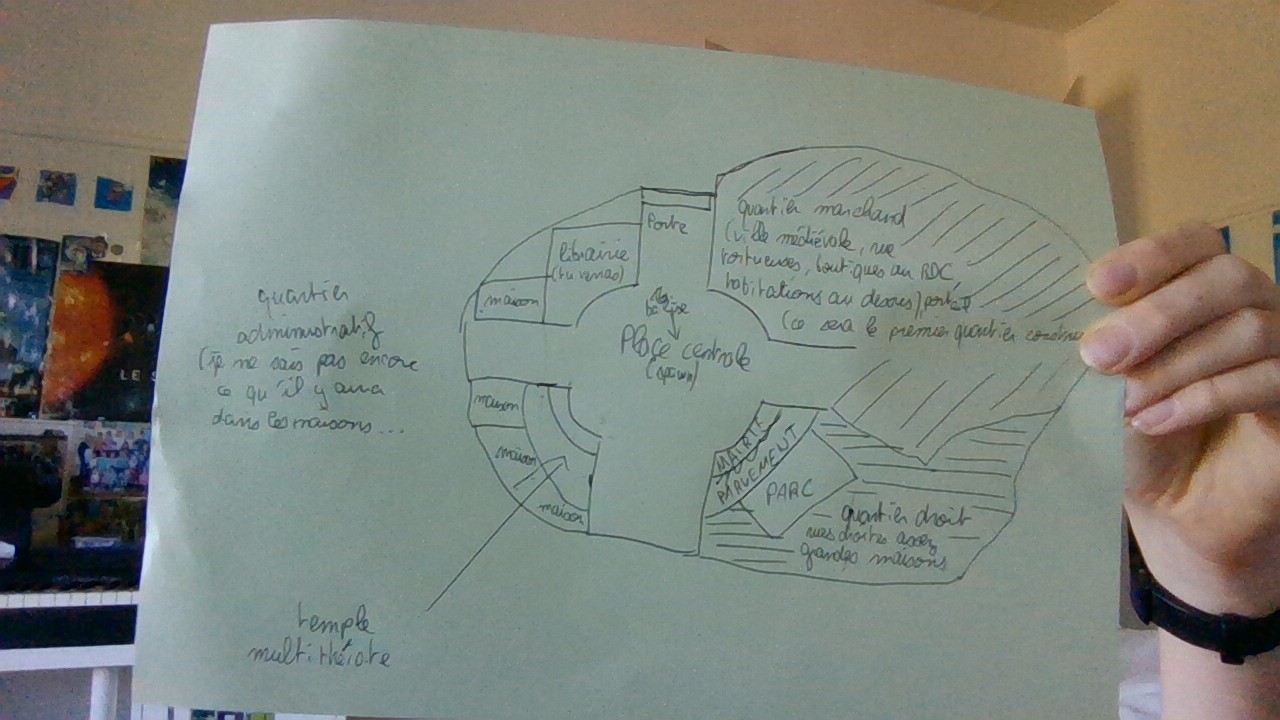 Porte
librairie
(tu verras)
maison
quartier marchand
(ville médiévale, rue
tortueuses, boutiques au RDC,
habitations au dessus)
(ce sera le premier quartier
Place centrale
(spawn)
quartier
administratif
(je ne sais pas encore
ce qu'il y aura
dans les maisons...
maison
maison
maison
MAIRIE
PARLEMENT
PARC
quartier droit
rues droites assez
grandes maisons
temple
multithéiste